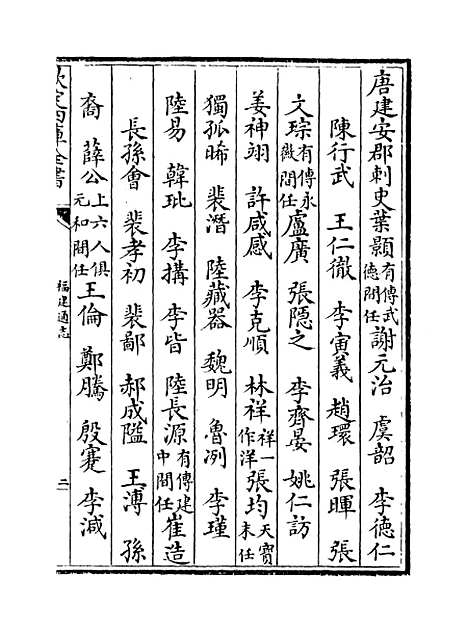 唐建安郡刺史葉顥有傳武德間任謝元治　虞韶　李德仁
陳行武　王仁徹　李寅義　趙環　張暉　張
文琮有傳永徽間任盧廣　張隱之　李齊晏　姚仁訪
姜神翊　許咸感　李克順　林祥祥一作洋張均天寶末任
獨孤晞　裴潛　陸藏器　魏明　魯冽　李瑾
陸易　韓玭　李搆　李皆　陸長源有傳建中間任崔造
長孫會　裴孝初　裴鄙　郝成隘　王溥　孫
裔　薛公上六人俱元和間任王倫　鄭騰　殷蹇　李減
欽定四庫全書
福建通志
二